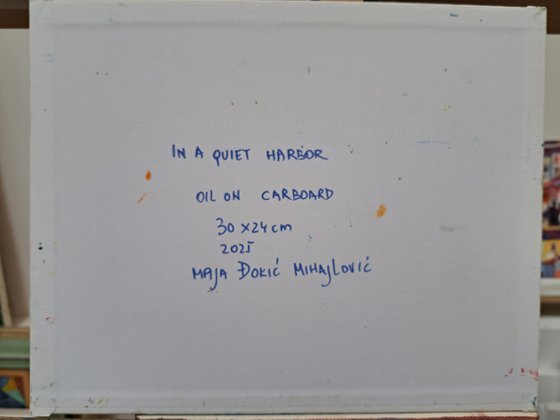 IN A QUIET HARBOR
OIL ON CARBOARD
30 x 24 cm
2025
MAJA ĐOKIĆ MIHAJLOVIĆ